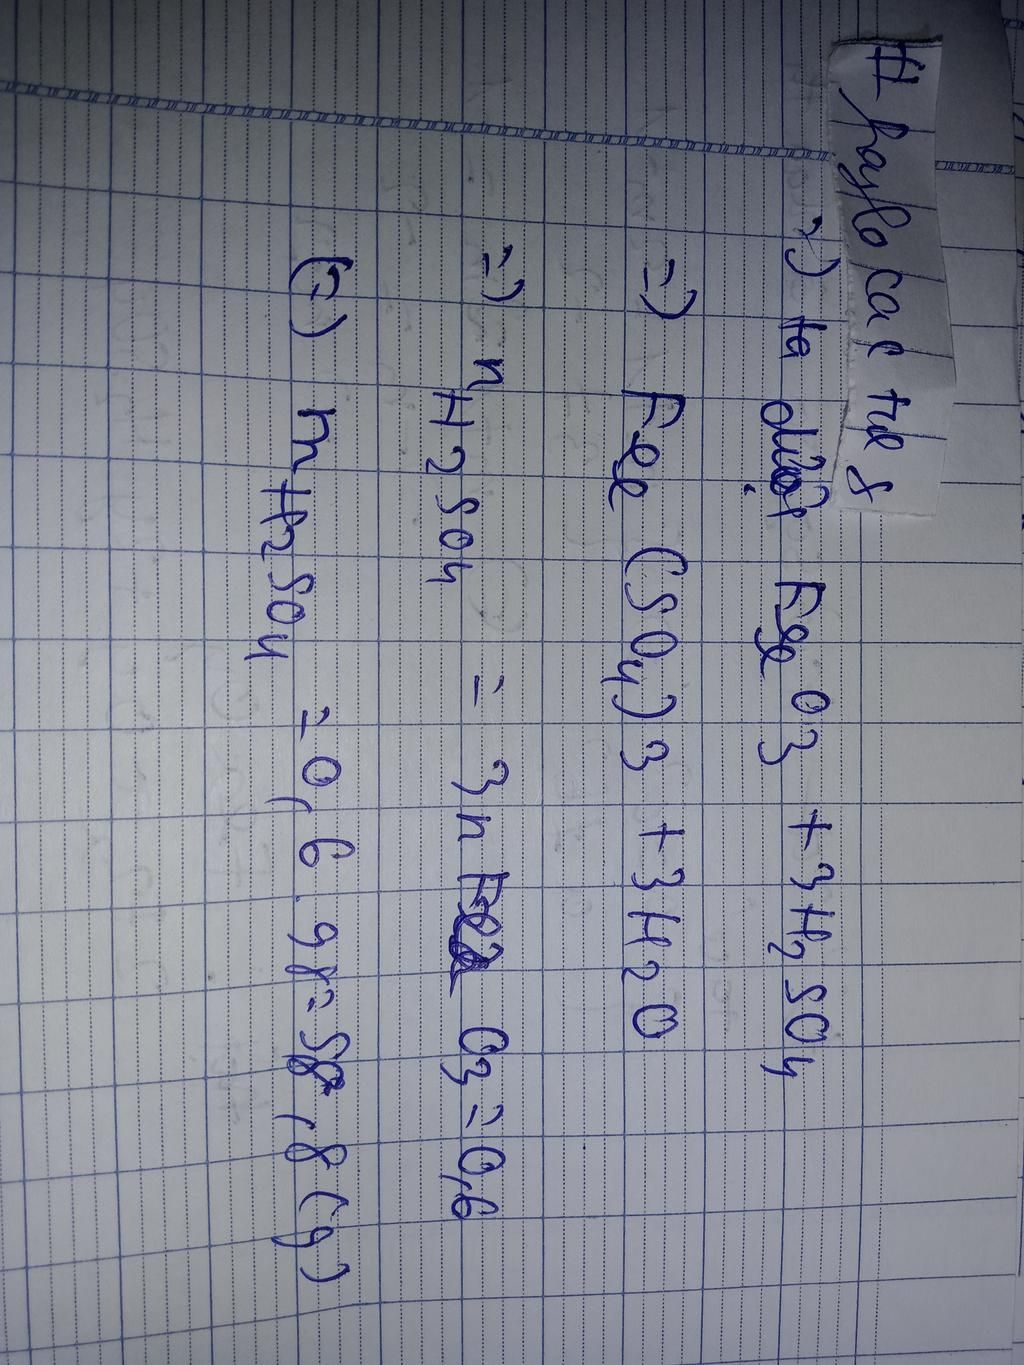 # haylo cac tue 8
=) ta được Fe2O3 + 3H2SO4
=) Fe2 (SO4)3 + 3H2O
=) nH2SO4 = 3n Fe2O3 = 0,6
(=) mH2SO4 = 0,6 . 98 = 58,8 (g)